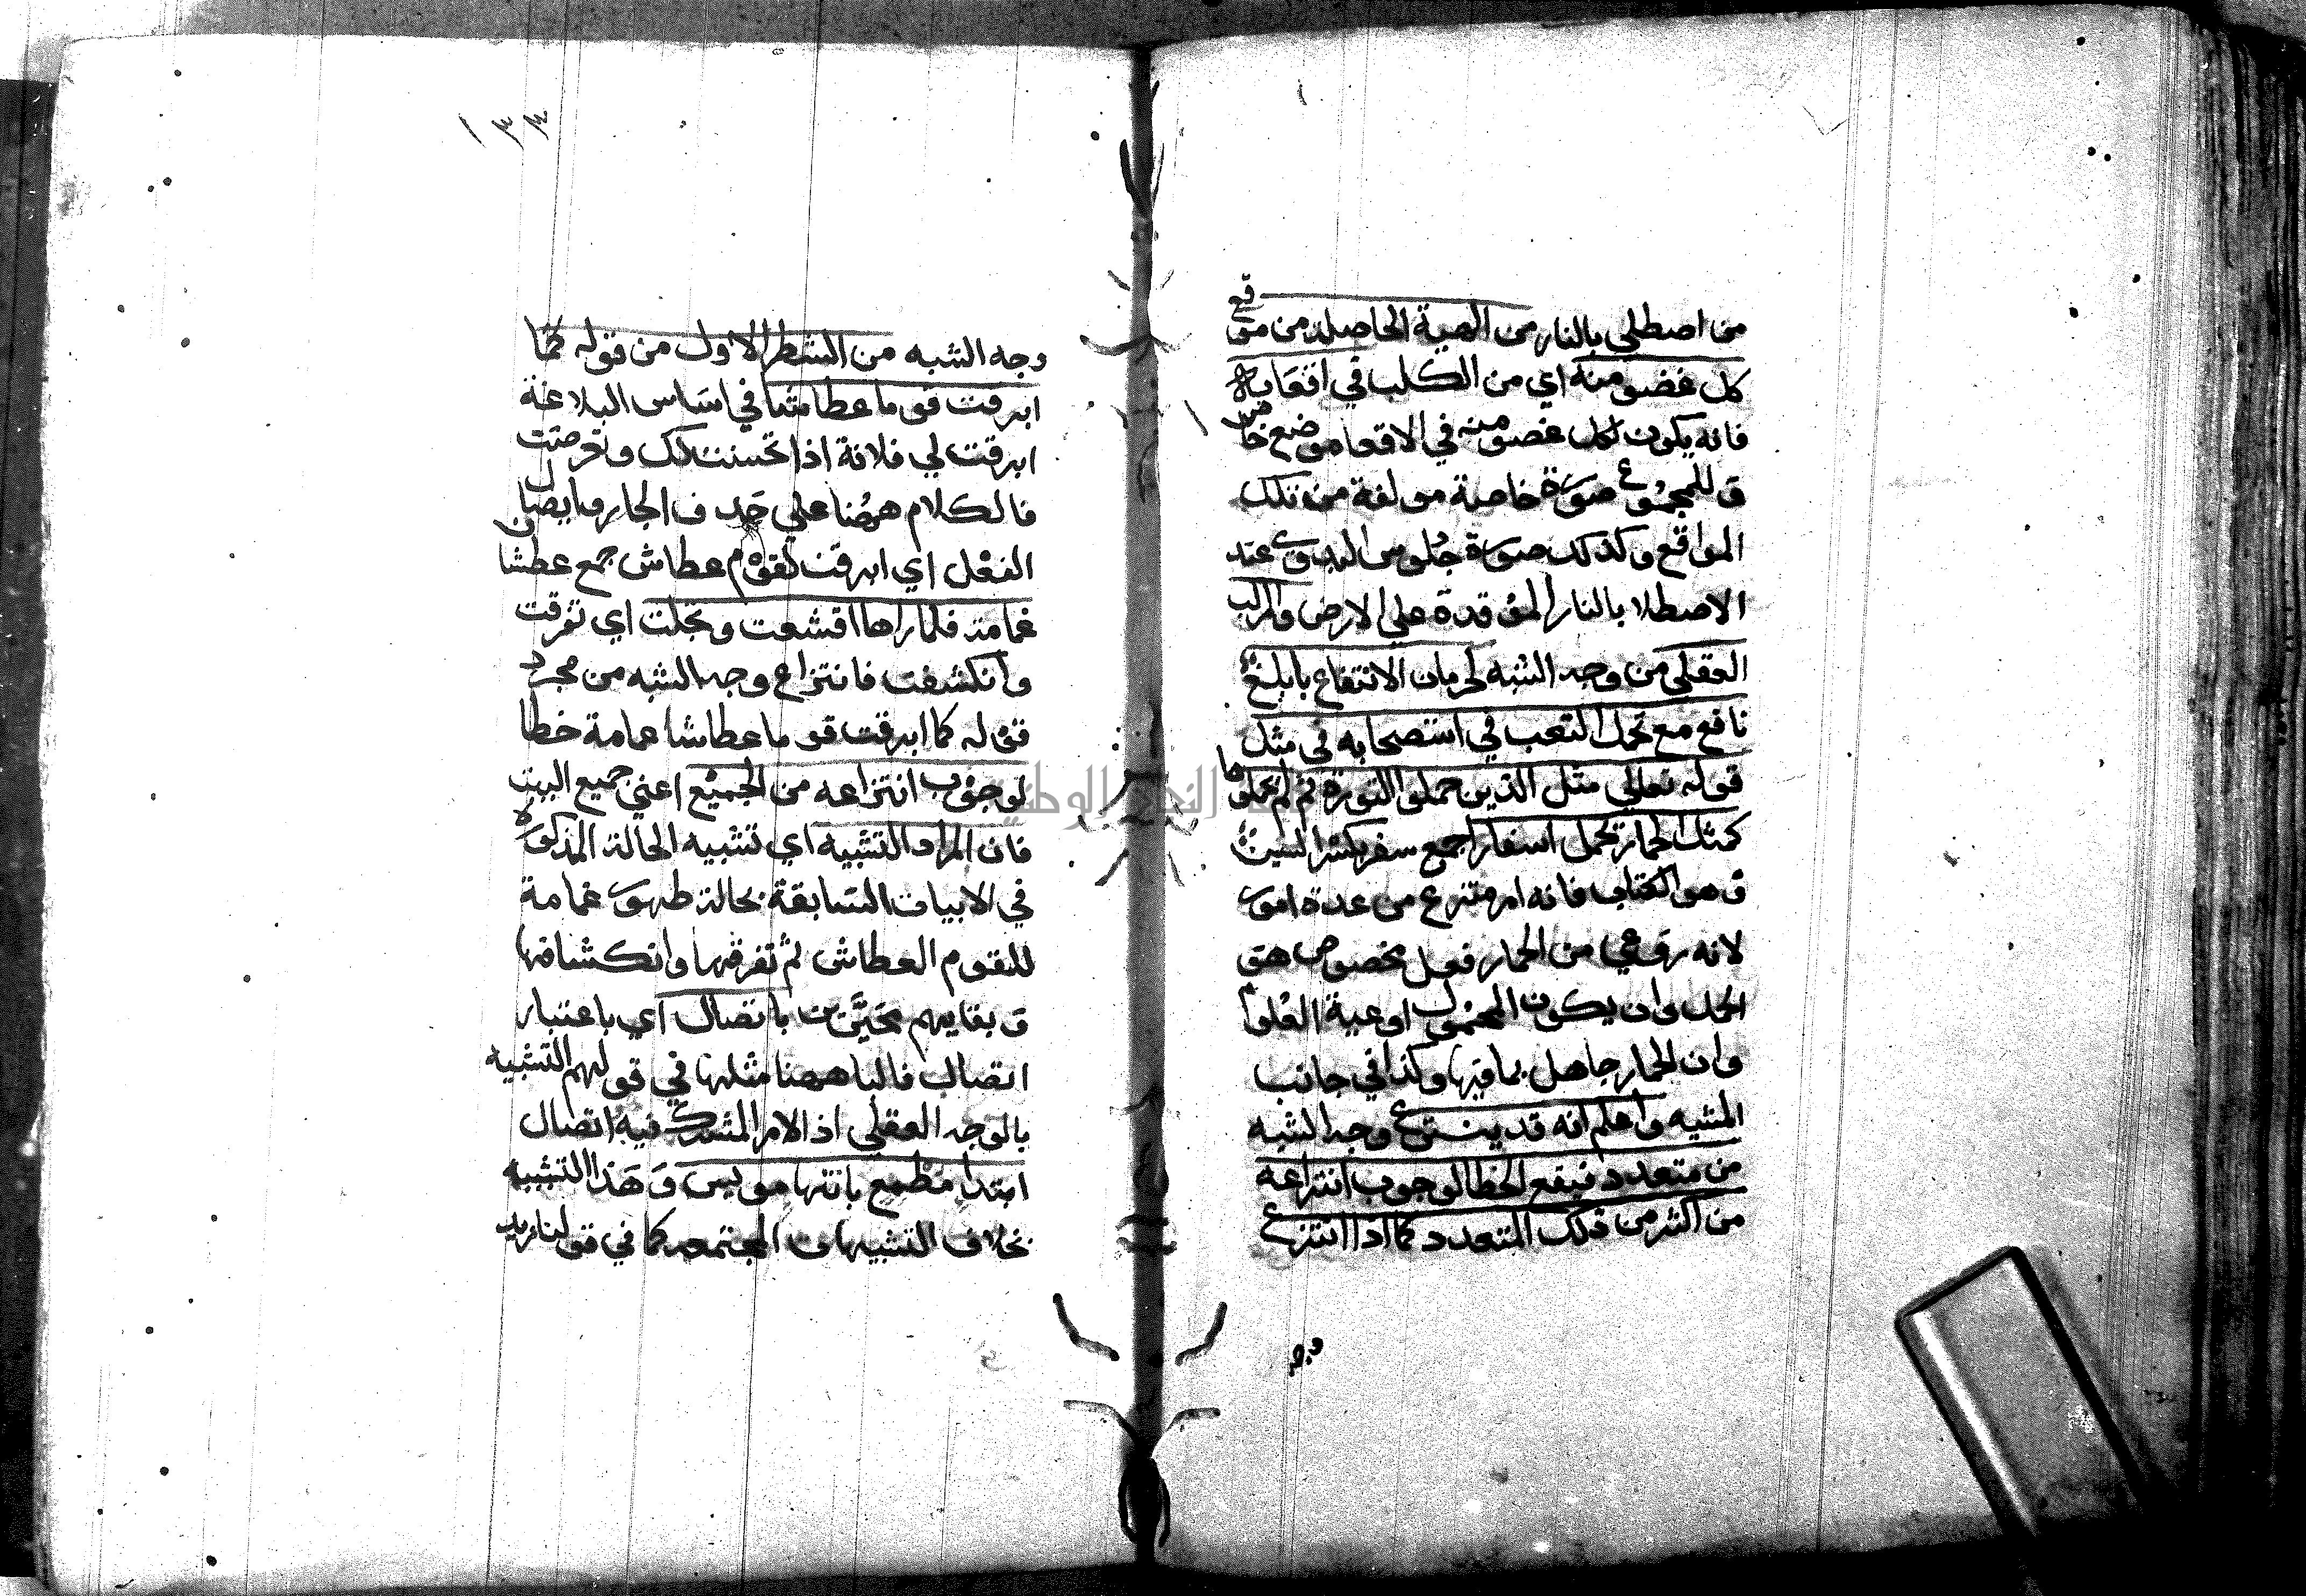 من اصطلي بالنار من الهيئة الحاصلة من موقع
كل عضو منه اي من الكلب في اقعايه
فانه يكون لكل عضو منه في الاقعا موضع خاص
و للمجموع صورة خاصة مولفة من تلك
المواقع وكذلك صورة جلوس البدوي عند
الاصطلا بالنار الموقدة علي الارض والمركب
العقلي من وجه الشبه كحرمان الانتفاع بابلغ
نافع مع تحمل التعب في استصحابه في مثل
قوله تعالي مثل الذين حملوا التورة ثم لم يحملوها
كمثل الحمار يحمل اسفارا جمع سفر بكسر السين
و هو الكتاب فانه امر منتزع من عدة امور
لانه روعي من الحمار فعل مخصوص هو
الحمل وان يكون المحمول اوعية العلوم
وان الحمار جاهل بما فيها وكذا في جانب
المشبه واعلم انه قد ينتزع وجه الشبه
من متعدد فيقع الخطا لوجوب انتزاعه
من اكثر من ذلك المتعدد كما اذا انتزع
وجه
١٣٣
وجه الشبه من الشطر الاول من قوله كما
ابرقت قوما عطاشا في اساس البلاغة
ابرقت لي فلانة اذا تحسنت لك وتعرضت
فالكلام ههنا علي حذف الجار وايصال
الفعل اي ابرقت لقوم عطاش جمع عطشان
غمامة فلما راوها اقشعت وتجلت اي تفرقت
وانكشفت فانتزاع وجه الشبه من مجرد
قوله كما ابرقت قوما عطاشا غمامة خطا
لوجوب انتزاعه من الجميع اعني جميع البيت
فان المراد التشبيه اي تشبيه الحالة المذكورة
في الابيات السابقة بحالة ظهور غمامة
للقوم العطاش ثم تفرقها وانكشافها
و بقايهم متحيرين باتصال اي باعتبار
اتصال فالبا ههنا مثلها في قولهم التشبيه
بالوجه العقلي اذ الامر المشترك فيه اتصال
ابتدا مطمع بانتها مويس وهذا التشبيه
بخلاف التشبيهات المجتمعة كما في قولنا زيد